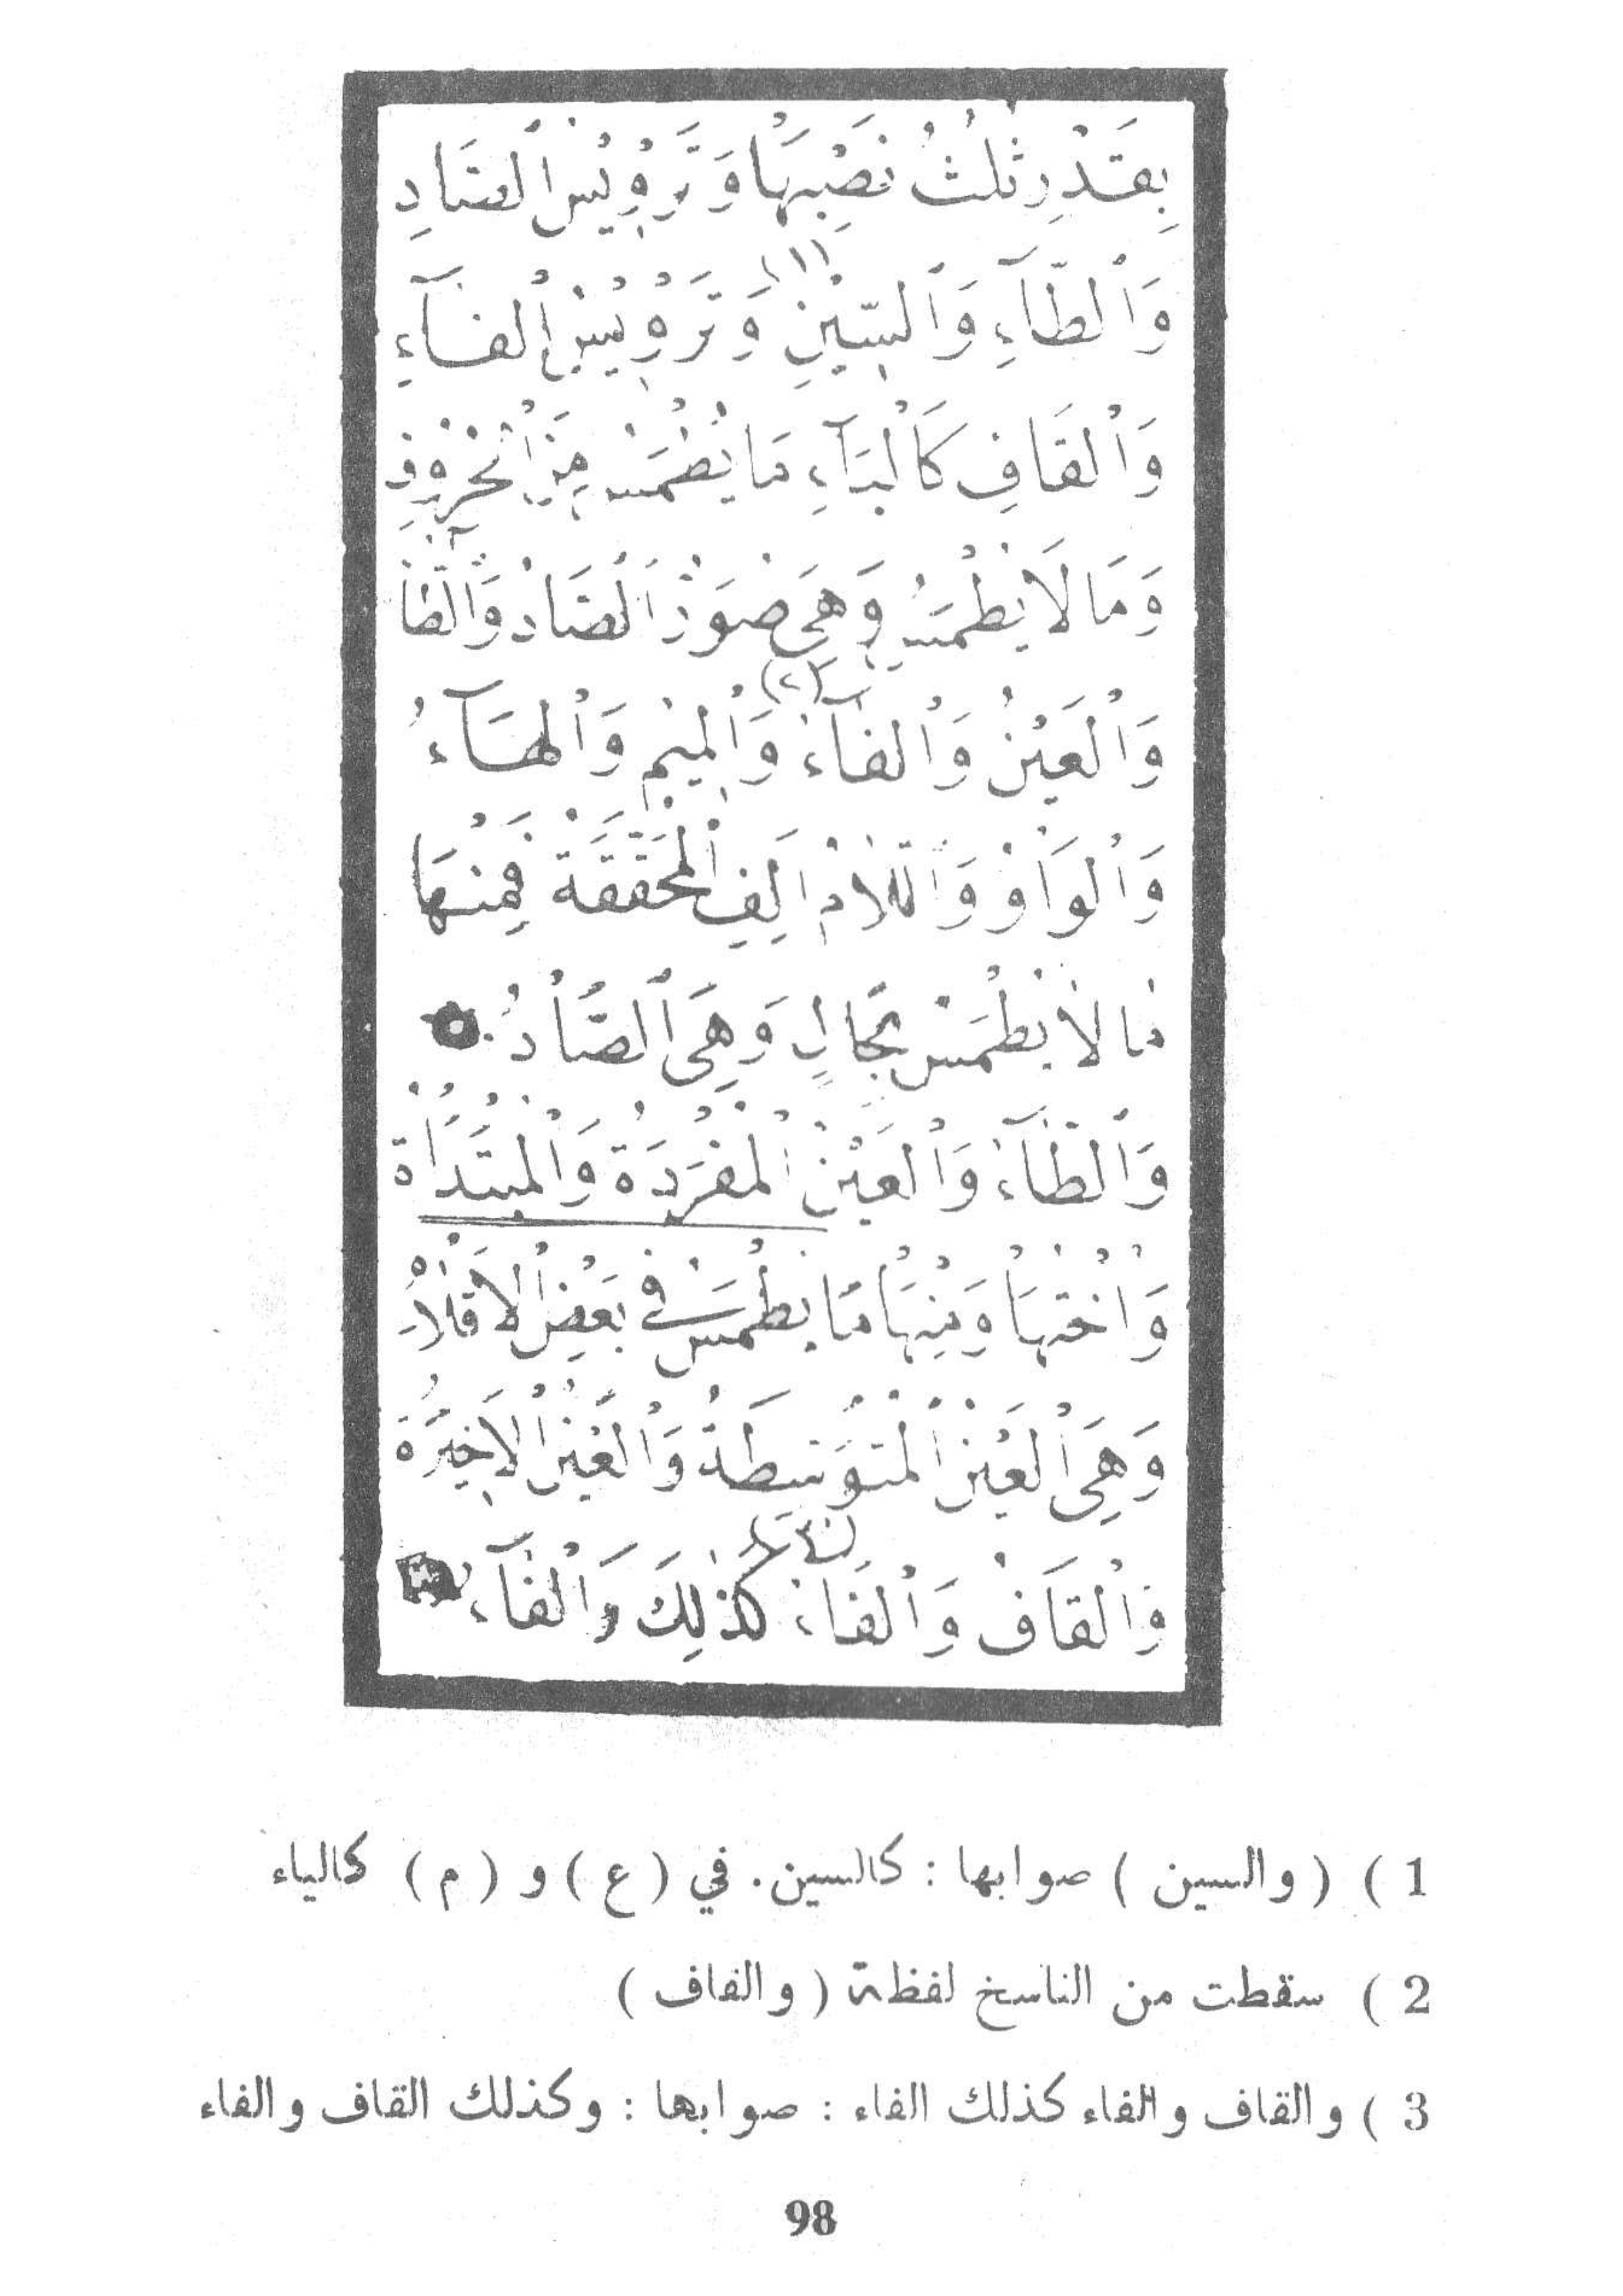 بِقَدْرِ ثُلُثُ نَصْبِهَا وَتَرْوِيْسُ ٱلصَّادِ
وَٱلطَّآءِ وَٱلسِّيْنِ (١) وَتَرْوِيْسُ ٱلفَآءِ
وَٱلقَافِ كَٱلْبَآءِ مَا يُطْمَسُ مِنَ ٱلْحُرُوْفِ
وَمَا لَا يُطْمَسُ وَهِيَ صُوَرُ ٱلصَّادْ وَٱلطَّا
وَٱلْعَيْنُ وَٱلفَآءُ (٢) وَٱلمِيْمُ وَٱلهَآءُ
وَٱلوَاوُ وَٱللَّامُ اَلِفِ ٱلْمُحَقَّقَةَ فَمِنْهَا
مَا لَا يُطْمَسُ بِحَالٍ وَهِيَ ٱلصَّادُ
وَٱلطَّآءُ وَٱلعَيْنُ ٱلْمُفْرَدَةُ وَٱلْمُبْتَدَأَةُ
وَأُخْتُهَا وَمِنْهَا مَا يُطْمَسُ فِي بَعْضِ ٱلاَقْلَامِ
وَهِيَ ٱلعَيْنُ ٱلْمُتَوَسِّطَةُ وَٱلعَيْنُ ٱلاَخِيْرَةُ
وَٱلقَافُ وَٱلْفَاءُ (٣) كَذٰلِكَ وَٱلْفَآءُ
1 ) ( والسين ) صوابها : كالسين . في ( ع ) و ( م ) كالياء
2 ) سقطت من الناسخ لفظة ( والقاف )
3 ) والقاف والفاء كذلك الفاء : صوابها : وكذلك القاف والفاء
98